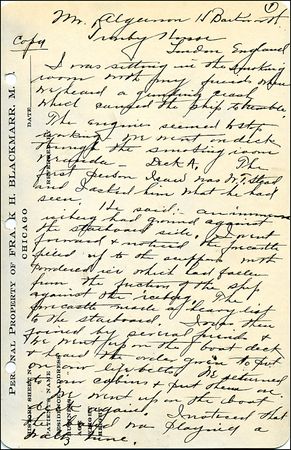 1
Mr. Algernon H Barkworth
Copy
Tranby House
London England
I was sitting in the smoking
room with my friends when
we heard a grinding crash
which caused the ship to tremble.
The engines seemed to stop
working. We went on deck
through the smoking room
veranda - Deck A. The
first person I saw was W.T. Stead
and I asked him what he had
seen. He said: an immense
iceberg had ground against
the starboard side. I went
forward & noticed the forcastle
piled up to the scuppers with
powdered ice which had fallen
from the friction of the ship
against the iceberg. The
forecastle made a heavy list
to the starboard. I was then
joined by several friends &
we went up on the boat deck
& heard the order given to put
on our lifebelts. We returned
to our cabins & put them on
& went up on the boat
deck again. I noticed that
band was playing a
waltz tune.
PERSONAL PROPERTY OF FRANK H. BLACKMARR, M.
CHICAGO
DATE
HISTORY SHEET NO.
PATIENT'S NAME